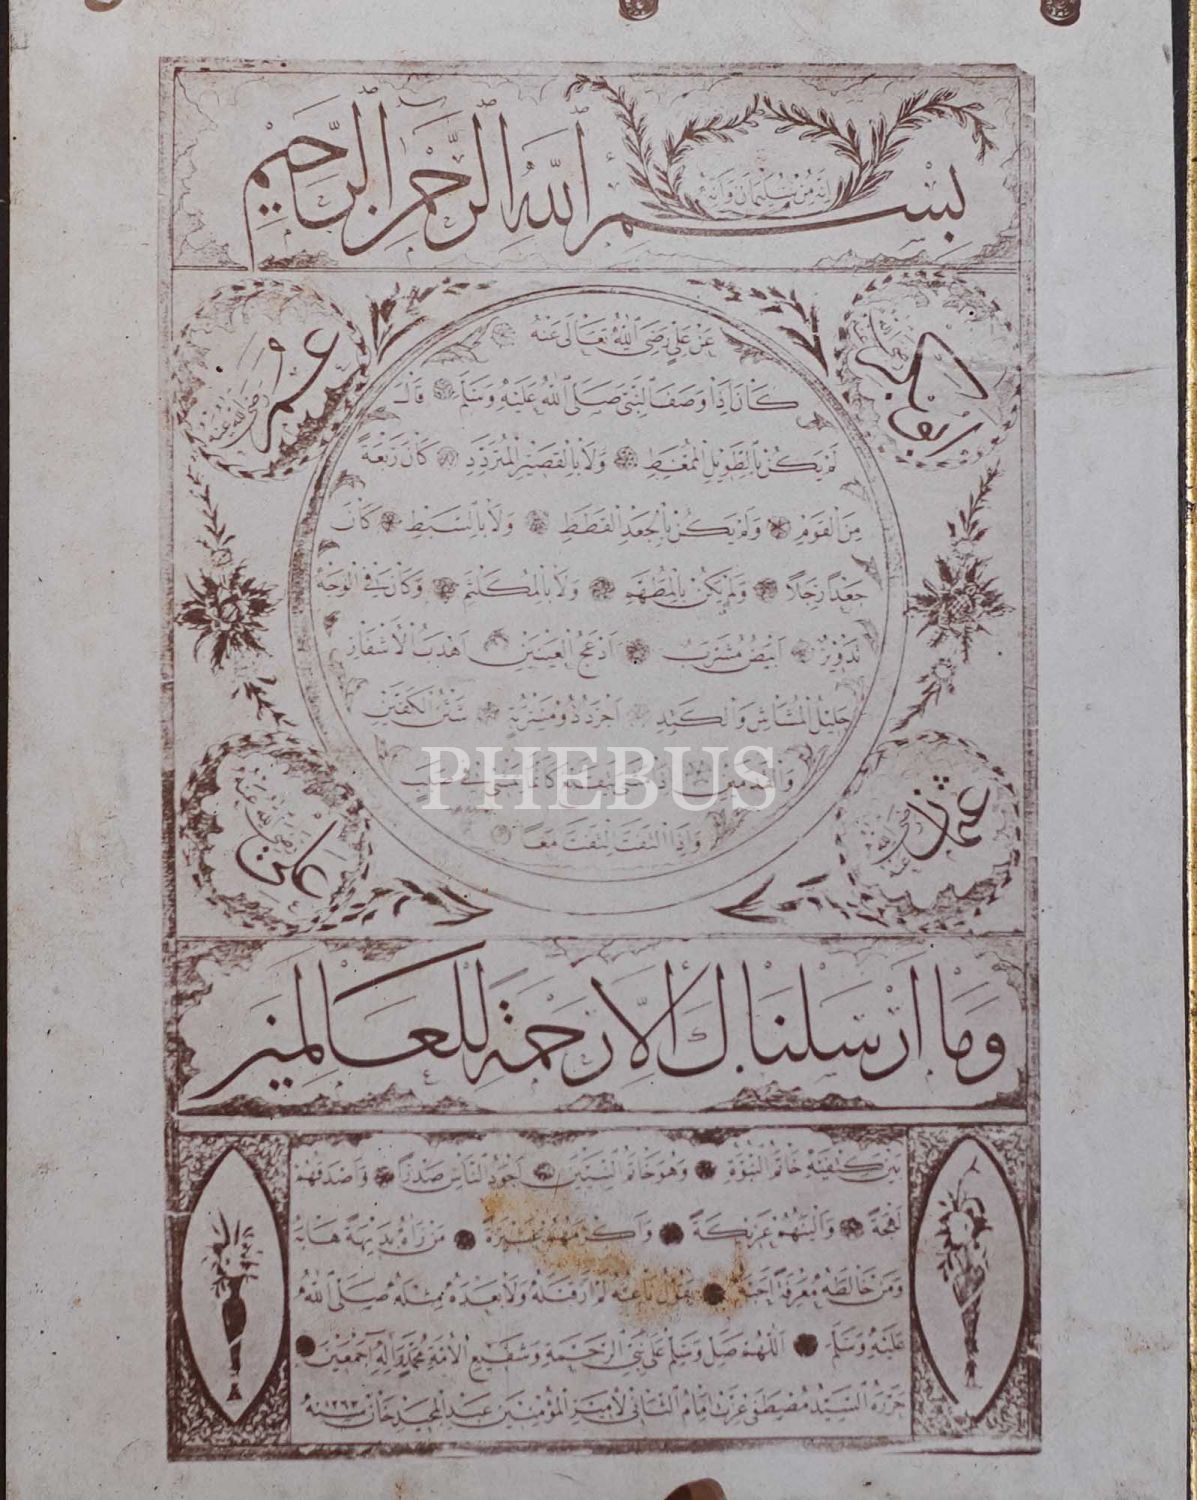 بسم الله الرحمن الرحيم
انه من سليمان وانه
ابو بكر
عمر رضى الله عنه
عن علي رضى الله تعالى عنه
كان اذا وصف النبى صلى الله عليه وسلم قال
لم يكن بالطويل الممغط ولا بالقصير المتردد كان ربعة
من القوم ولم يكن بالجعد القطط ولا بالسبط كان
جعدا رجلا ولم يكن بالمطهم ولا بالمكلثم وكان في الوجه
تدوير ابيض مشرب ادعج العينين اهدب الاشفار
جليل المشاش والكتد اجرد ذو مسربة شثن الكفين
PHEBUS
واذا التفت التفت معا
عثمان رضى الله عنه
على رضى الله عنه
وما ارسلناك الا رحمة للعالمين
بين كتفيه خاتم النبوة وهو خاتم النبيين اجود الناس صدرا واصدقهم
لهجة والينهم عريكة واكرمهم عشيرة من راه بديهة هابه
ومن خالطه معرفة احبه يقول ناعته لم ار قبله ولا بعده مثله صلى الله
عليه وسلم اللهم صل وسلم على نبى الرحمة وشفيع الامة محمد واله اجمعين
حرره السيد مصطفى عزت امام الثانى لامير المؤمنين عبد المجيد خان سنه ١٢٦٢